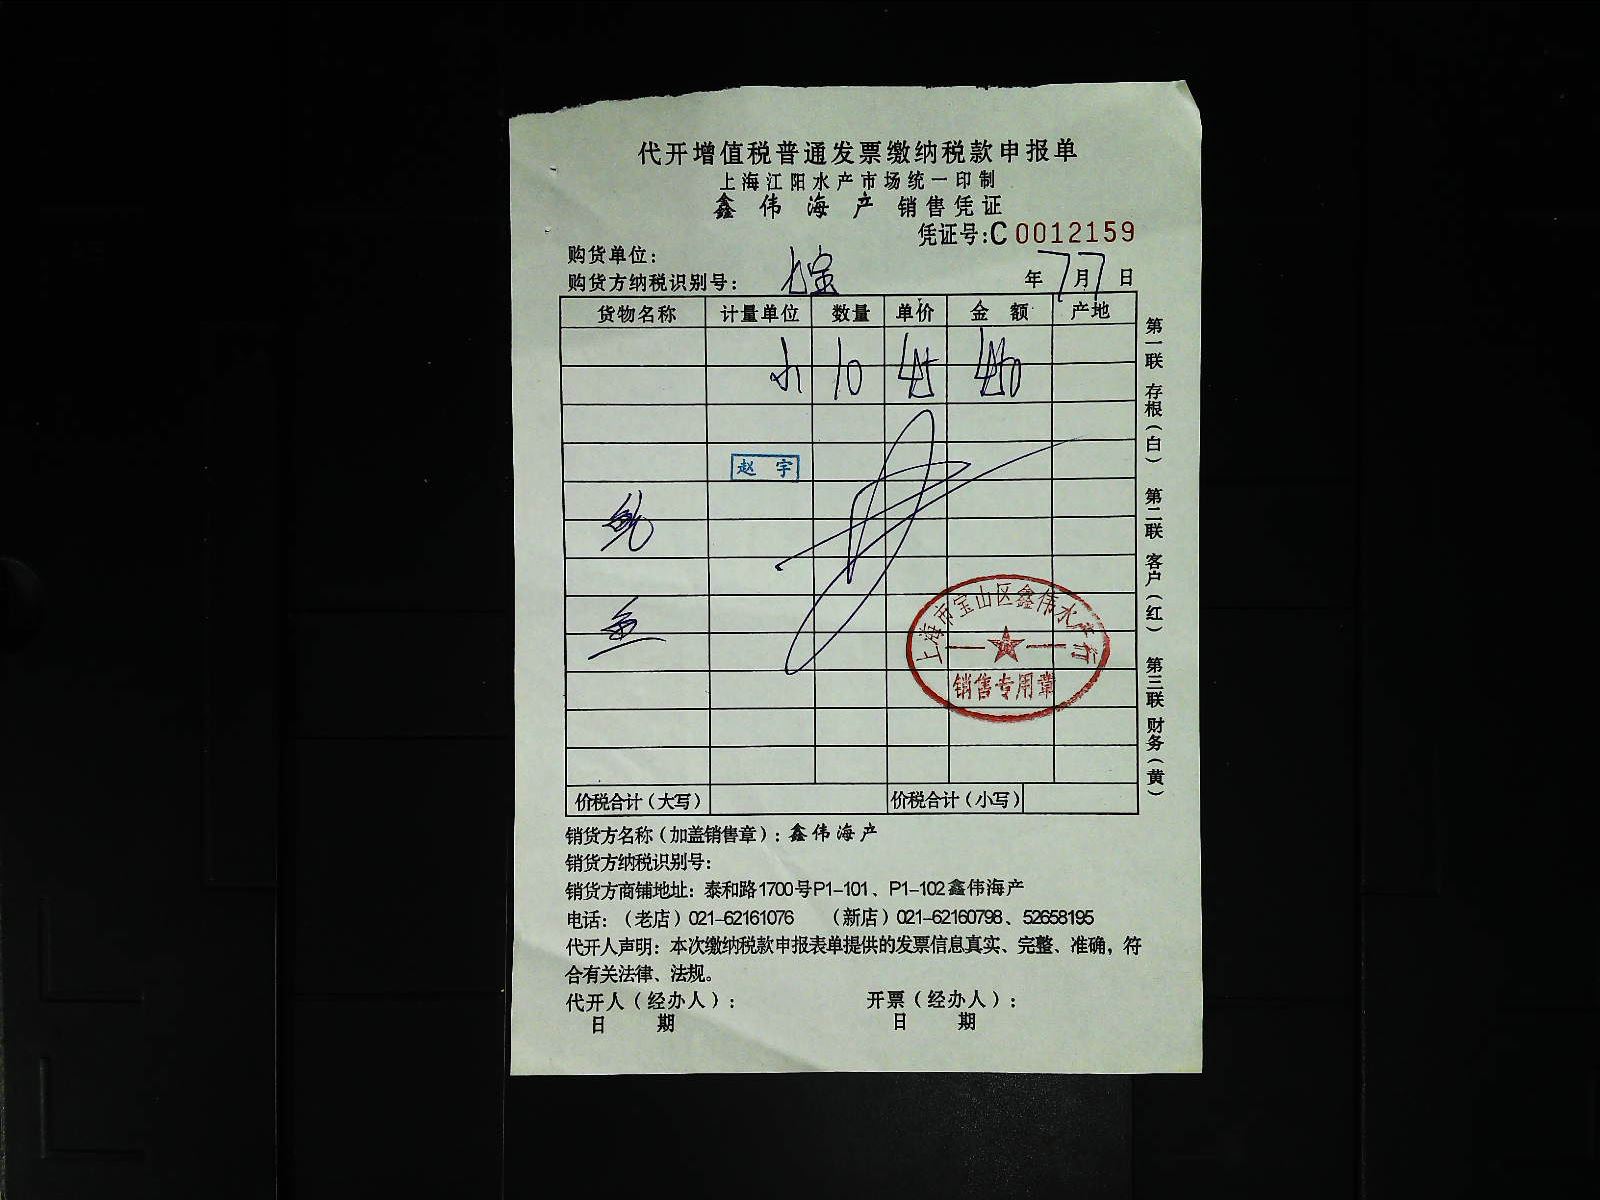 代开增值税普通发票缴纳税款申报单
上海江阳水产市场统一印制
鑫伟海产 销售凭证
凭证号:C 0012159
购货单位:
购货方纳税识别号: 七宝 年 7 月 7 日
货物名称 计量单位 数量 单价 金 额 产地
小 10 45 450
赵 宇
鲍
鱼
上海市宝山区鑫伟水产行
销售专用章
价税合计(大写) 价税合计(小写)
第一联 存根(白) 第二联 客户(红) 第三联 财务(黄)
销货方名称(加盖销售章): 鑫伟海产
销货方纳税识别号:
销货方商铺地址: 泰和路1700号P1-101、P1-102鑫伟海产
电话:(老店)021-62161076 (新店)021-62160798、52658195
代开人声明: 本次缴纳税款申报表单提供的发票信息真实、完整、准确,符
合有关法律、法规。
代开人(经办人): 开票(经办人):
日 期 日 期